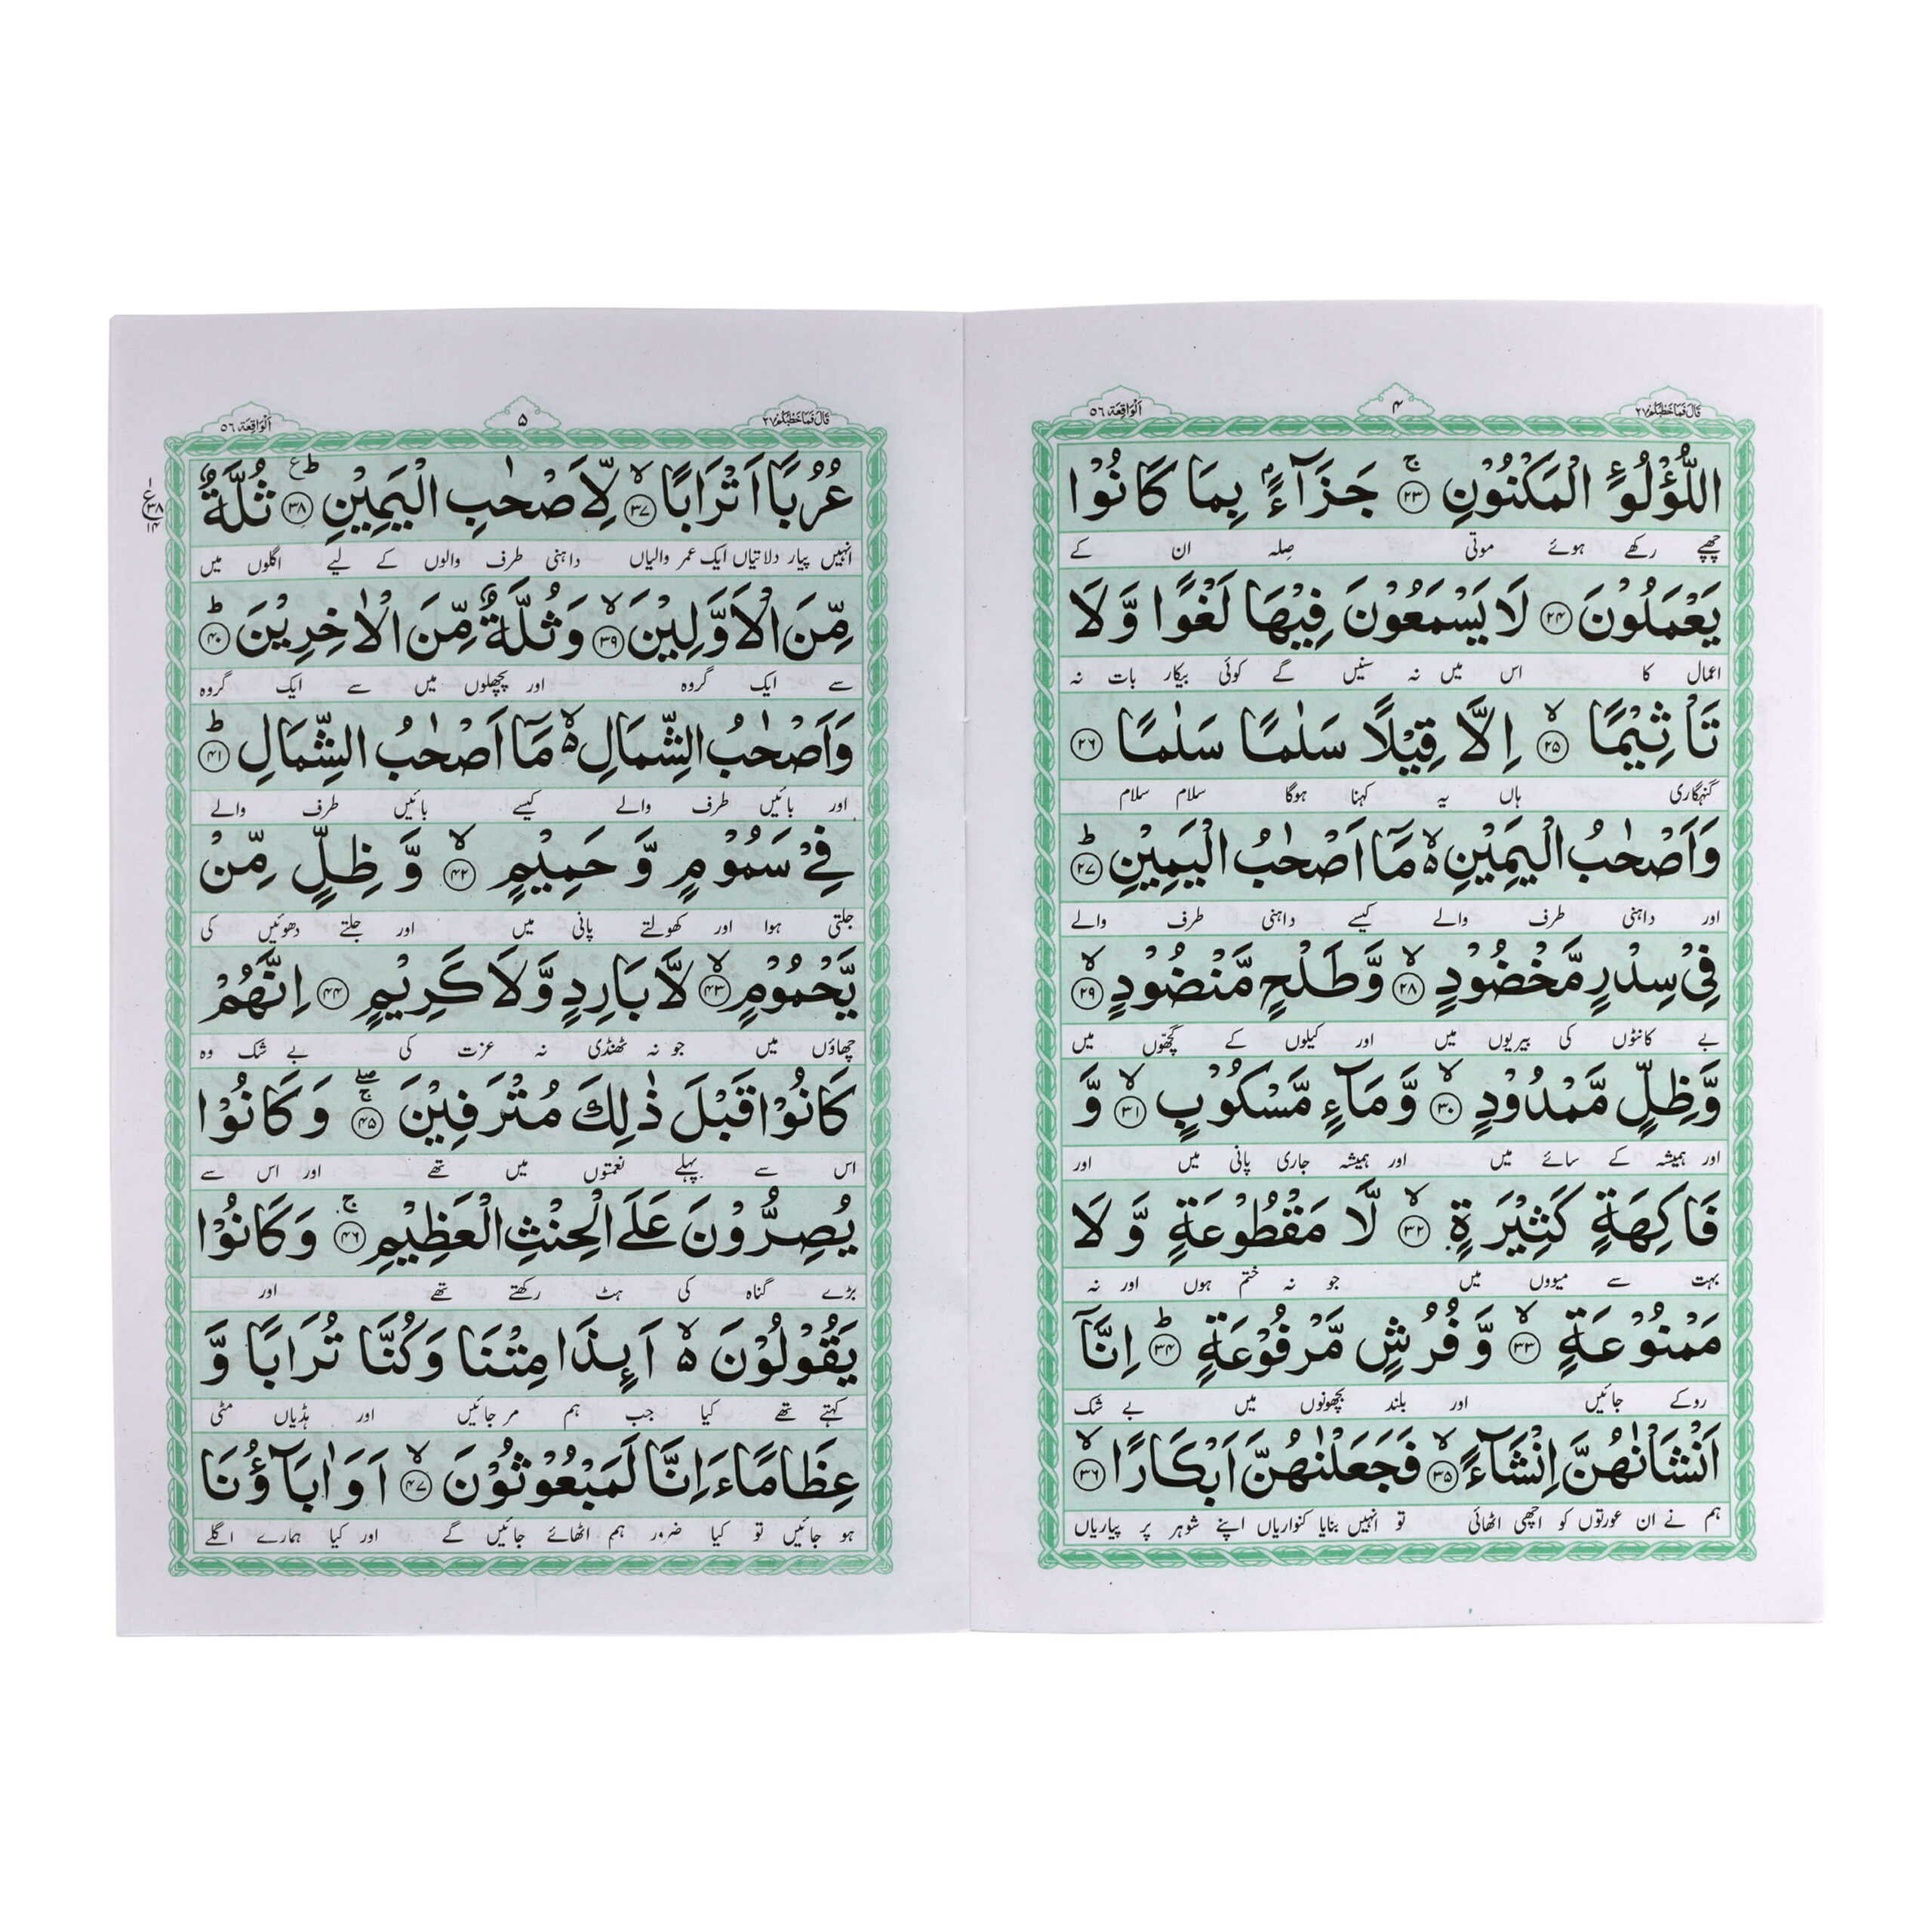 قَالَ فَمَا خَطْبُكُمْ ٢٧
۴
اَلْوَاقِعَة ٥٦
اللُّؤْلُؤِ الْمَكْنُوْنِ ۚ﴿۲۳﴾ جَزَآءًۢ بِمَا كَانُوْا
چھپے رکھے ہوئے موتی صِلہ ان کے
يَعْمَلُوْنَ ﴿۲۴﴾ لَا يَسْمَعُوْنَ فِيْهَا لَغْوًا وَّ لَا
اعمال کا اس میں نہ سنیں گے کوئی بیکار بات نہ
تَاْثِيْمًا ۙ﴿۲۵﴾ اِلَّا قِيْلًا سَلٰمًا سَلٰمًا ﴿۲۶﴾
گنہگاری ہاں یہ کہنا ہوگا سلام سلام
وَاَصْحٰبُ الْيَمِيْنِ ۙ۬ مَاۤ اَصْحٰبُ الْيَمِيْنِ ؕ﴿۲۷﴾
اور داہنی طرف والے کیسے داہنی طرف والے
فِيْ سِدْرٍ مَّخْضُوْدٍ ۙ﴿۲۸﴾ وَّ طَلْحٍ مَّنْضُوْدٍ ۙ﴿۲۹﴾
بے کانٹوں کی بیریوں میں اور کیلوں کے گچھوں میں
وَّ ظِلٍّ مَّمْدُوْدٍ ۙ﴿۳۰﴾ وَّ مَآءٍ مَّسْكُوْبٍ ۙ﴿۳۱﴾ وَّ
اور ہمیشہ کے سائے میں اور ہمیشہ جاری پانی میں اور
فَاكِهَةٍ كَثِيْرَةٍ ۙ﴿۳۲﴾ لَّا مَقْطُوْعَةٍ وَّ لَا
بہت سے میووں میں جو نہ ختم ہوں اور نہ
مَمْنُوْعَةٍ ۙ﴿۳۳﴾ وَّ فُرُشٍ مَّرْفُوْعَةٍ ؕ﴿۳۴﴾ اِنَّاۤ
روکے جائیں اور بلند بچھونوں میں بے شک
اَنْشَاْنٰهُنَّ اِنْشَآءً ۙ﴿۳۵﴾ فَجَعَلْنٰهُنَّ اَبْكَارًا ۙ﴿۳۶﴾
ہم نے ان عورتوں کو اچھی اٹھائی تو انہیں بنایا کنواریاں اپنے شوہر پر پیاریاں
قَالَ فَمَا خَطْبُكُمْ ٢٧
۵
اَلْوَاقِعَة ٥٦
عُرُبًا اَتْرَابًا ۙ﴿۳۷﴾ لِّاَصْحٰبِ الْيَمِيْنِ ؕ﴿۳۸﴾ ثُلَّةٌ
انہیں پیار دلاتیاں ایک عمر والیاں داہنی طرف والوں کے لیے اگلوں میں
مِّنَ الْاَوَّلِيْنَ ۙ﴿۳۹﴾ وَ ثُلَّةٌ مِّنَ الْاٰخِرِيْنَ ؕ﴿۴۰﴾
سے ایک گروہ اور پچھلوں میں سے ایک گروہ
وَاَصْحٰبُ الشِّمَالِ ۙ۬ مَاۤ اَصْحٰبُ الشِّمَالِ ؕ﴿۴۱﴾
اور بائیں طرف والے کیسے بائیں طرف والے
فِيْ سَمُوْمٍ وَّ حَمِيْمٍ ۙ﴿۴۲﴾ وَّ ظِلٍّ مِّنْ
جلتی ہوا اور کھولتے پانی میں اور جلتے دھوئیں کی
يَّحْمُوْمٍ ۙ﴿۴۳﴾ لَّا بَارِدٍ وَّ لَا كَرِيْمٍ ﴿۴۴﴾ اِنَّهُمْ
چھاؤں میں جو نہ ٹھنڈی نہ عزت کی بے شک وہ
كَانُوْا قَبْلَ ذٰلِكَ مُتْرَفِيْنَ ۚۖ﴿۴۵﴾ وَ كَانُوْا
اس سے پہلے نعمتوں میں تھے اور اس سے
يُصِرُّوْنَ عَلَي الْحِنْثِ الْعَظِيْمِ ۚ﴿۴۶﴾ وَ كَانُوْا
بڑے گناہ کی ہٹ رکھتے تھے اور
يَقُوْلُوْنَ ۙ۬ اَئِذَا مِتْنَا وَ كُنَّا تُرَابًا وَّ
کہتے تھے کیا جب ہم مر جائیں اور ہڈیاں مٹی
عِظَامًا ءَاِنَّا لَمَبْعُوْثُوْنَ ۙ﴿۴۷﴾ اَوَ اٰبَآؤُنَا
ہو جائیں تو کیا ضرور ہم اٹھائے جائیں گے اور کیا ہمارے اگلے